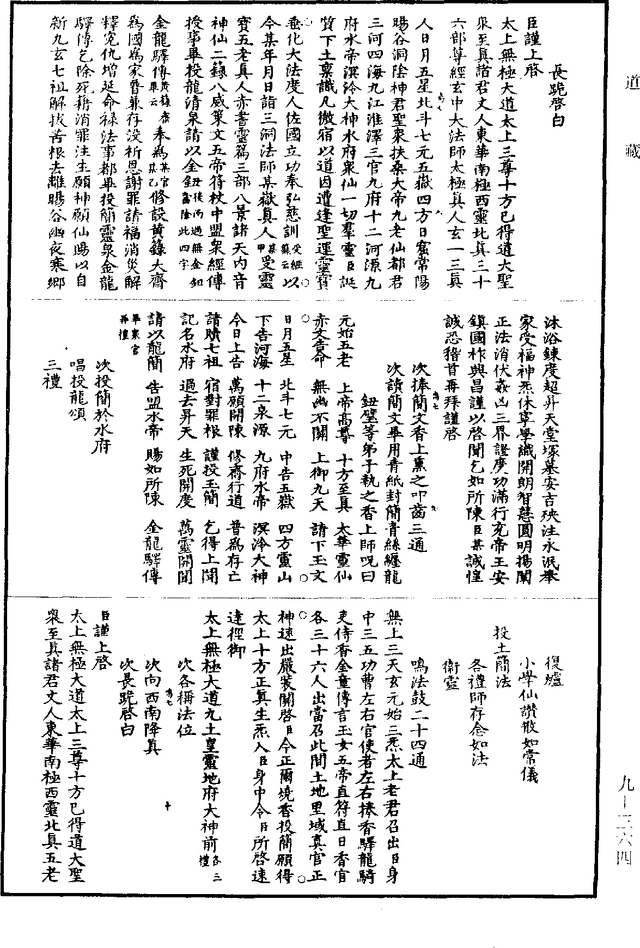 道藏
長跪啓白
臣謹上啓
太上無極大道太上三尊十方已得道大聖
衆至真諸君丈人東華南極西靈北真三十
六部尊經玄中大法師太極真人玄一三真
人日月五星北斗七元五嶽四方日窟常陽
暘谷洞陰神君聖衆扶桑大帝九老仙都君
三河四海九江淮澤三官九府十二河源九
府水帝溟泠大神水府衆仙一切羣靈臣誕
質下土禀識凡微宿以道因遭逢聖運靈寶
垂化大法度人佐國立功奉弘慈訓受經云以
今某年月日詣三洞法師某嶽真人某甲受靈
寶五老真人赤書靈篇三部八景諸天內音
神仙二籙八威策文五帝符杖中盟衆經傳
授事畢投龍清泉請以金鈕
金龍驛傳 奉爲某官某乙修設黃籙大齋
爲國爲家普兼存没祈恩謝罪請福消災解
釋冤仇增延命禄法事都畢投簡靈泉金龍
驛傳乞除死籍消罪注生願神願仙賜以自
新九玄七祖解拔苦根去離暘谷幽夜寒鄉
沐浴鍊度超昇天堂塚墓安吉殃注永泯舉
家受福神炁休寧學識開朗智慧圓明揚闡
正法消伏姦凶三界證度功滿行充帝王安
鎮國祚興昌謹以啓聞乞如所陳臣某誠惶
誠恐稽首再拜謹啓
次捧簡文香上熏之叩齒三通
次讀簡文畢用青紙封簡青絲纏龍
鈕璧等弟子執之香上師呪曰
元始五老 上帝高尊 十方至真 太華靈仙
赤文告命 無幽不關 上御九天 請下玉文
日月五星 北斗七元 中告五嶽 四方靈山
下告河海 十二泉源 九府水帝 溟泠大神
今日上告 萬願開陳 修齋行道 普爲存亡
請贖七祖 宿對罪根 謹投玉簡 乞得上聞
記名水府 過去昇天 生死開度 萬靈開聞
請以龍簡 告盟水帝 賜如所陳 金龍驛傳
畢衆官再禮
次投簡於水府
唱投龍頌
三禮
復爐
小學仙讚散如常儀
投土簡法
各禮師存念如法
衞靈
鳴法鼓二十四通
無上三天玄元始三炁太上老君召出臣身
中三五功曹左右官使者左右捧香驛龍騎
吏侍香金童傳言玉女五帝直符直日香官
各三十六人出當召此間土地里域真官正
神速出嚴裝關啓臣今正爾境香投簡願得
太上十方正真生炁入臣身中令臣所啓速
達徑御
太上無極大道九土皇靈地府大神前各三禮
次各稱法位
次向西南降真
次長跪啓白
臣謹上啓
太上無極大道太上三尊十方已得道大聖
衆至真諸君丈人東華南極西靈北真五老
九—三六四